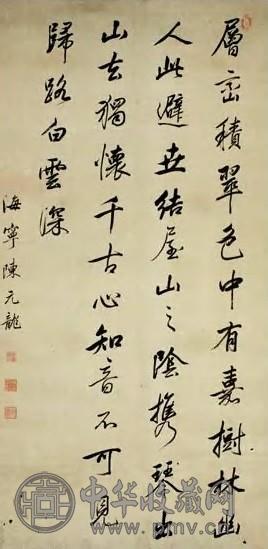 層巒積翠色中有嘉樹林幽
人此避世結屋山之陰攜琴出
山去獨懷千古心知音不可見
歸路白雲深
海寧陳元龍
中华收藏网
www.pmv.cn